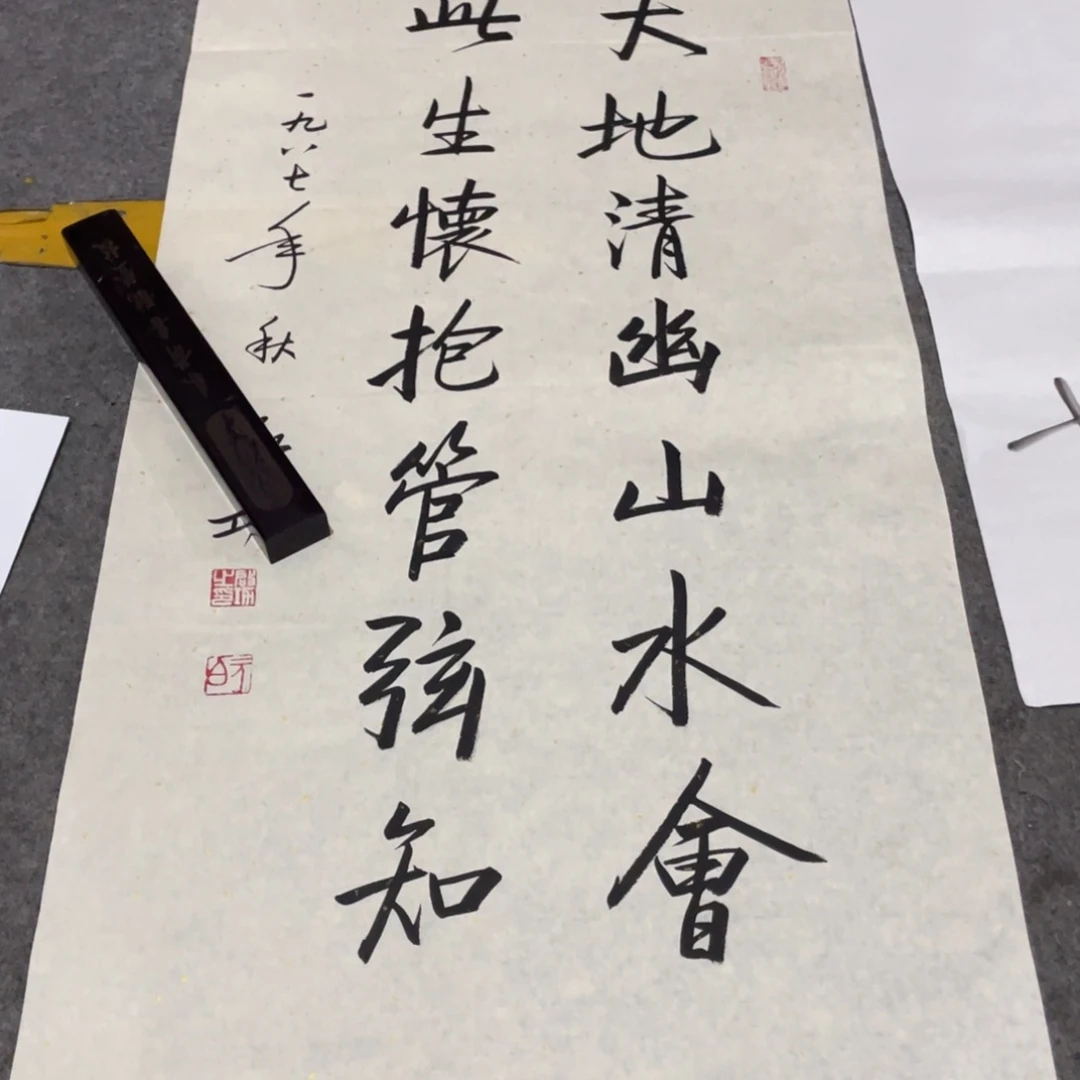 天地清幽山水會
此生懷抱管弦知
一九八七年秋